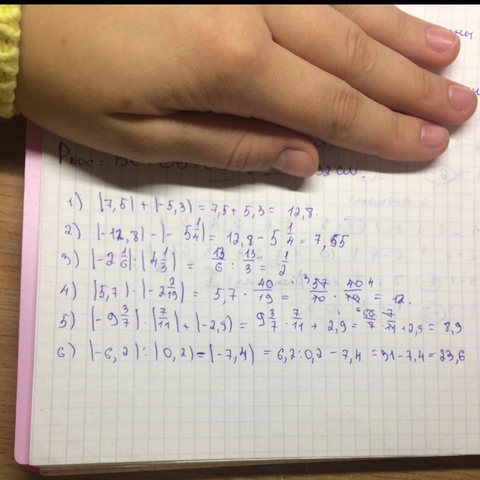 ны
Pвос = 32 см.
1) |7,5| + |-5,3| = 7,5 + 5,3 = 12,8.
2) |-12,8| - |-5 1/4| = 12,8 - 5 1/4 = 7,55
3) |-2 1/6| : |4 1/3| = 13/6 : 13/3 = 1/2
4) |5,7| · |-2 2/19| = 5,7 · 40/19 = 57/10 · 40/19 = 12.
5) |-9 3/7| · |7/11| + |-2,9| = 9 3/7 · 7/11 + 2,9 = 66/7 · 7/11 + 2,9 = 8,9
6) |-6,2| : |0,2| - |-7,4| = 6,2 : 0,2 - 7,4 = 31 - 7,4 = 23,6